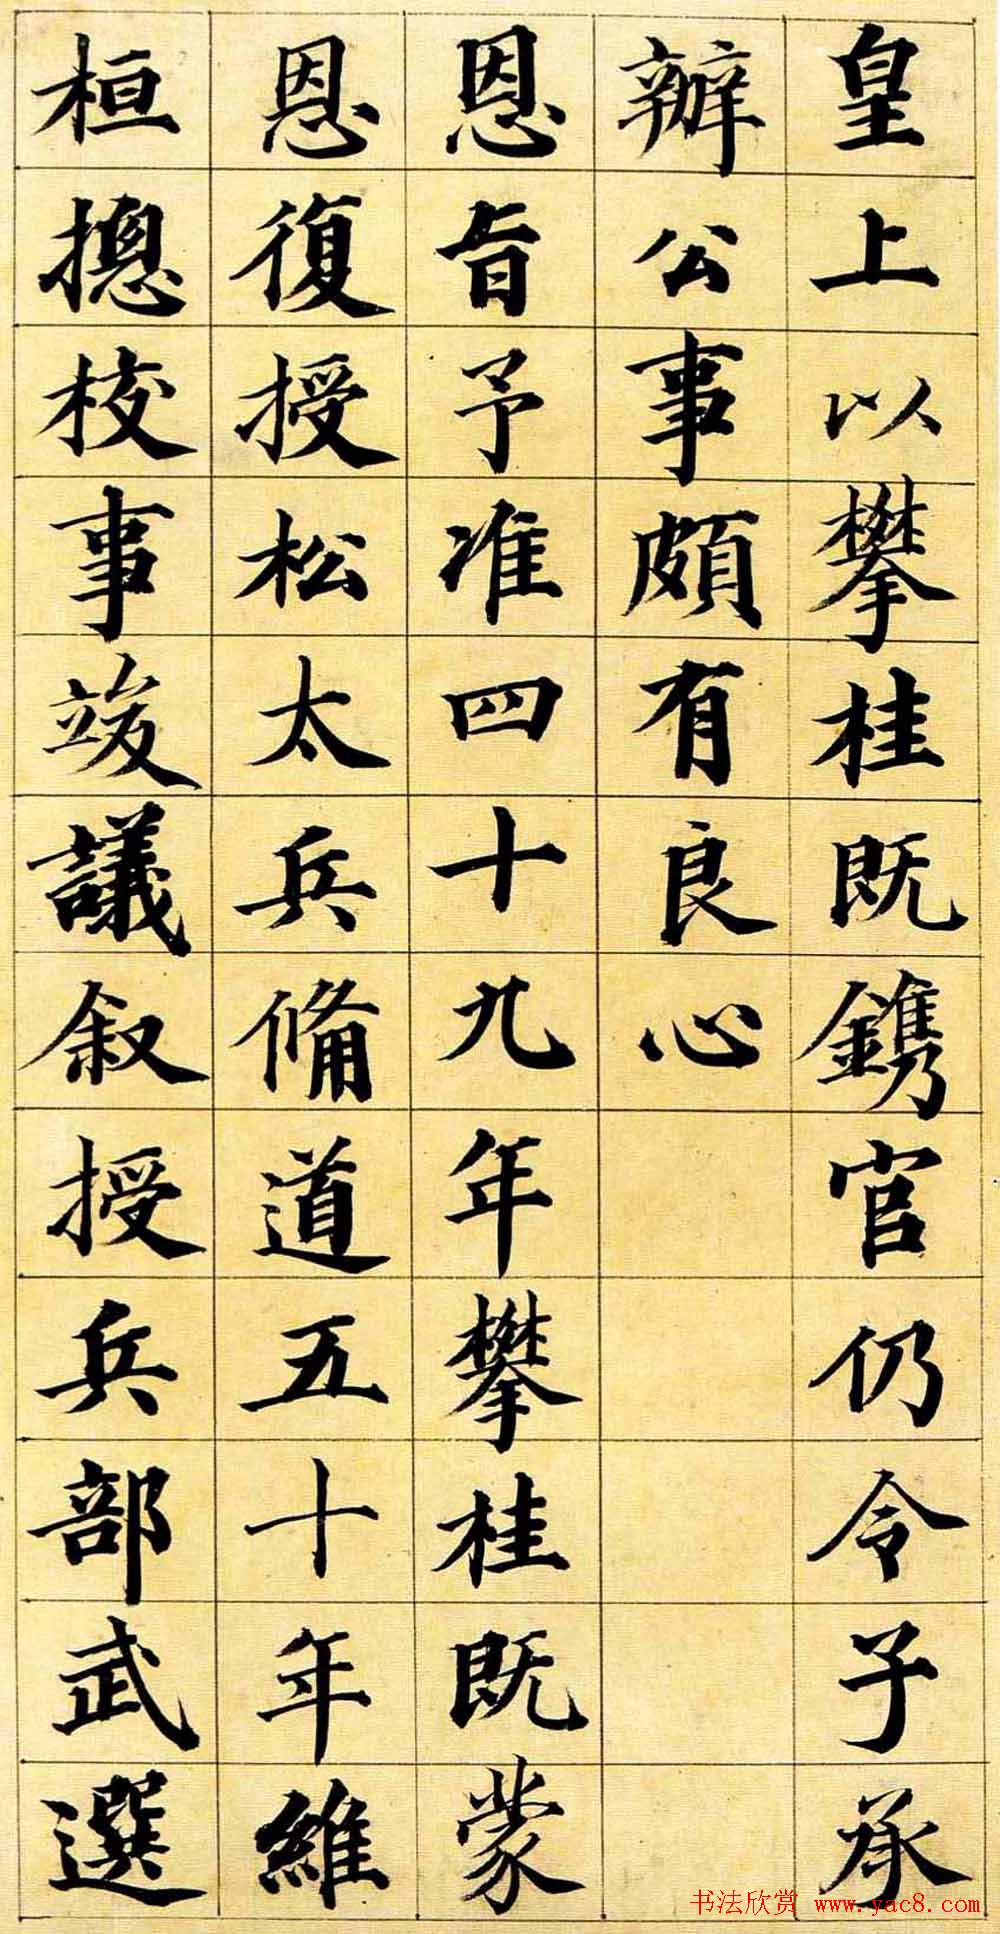 皇上以攀桂既鐫官仍令子承
辦公事頗有良心
恩旨予准四十九年攀桂既蒙
恩復授松太兵俻道五十年維
桓摠校事竣議叙授兵部武選
书法欣赏 www.yac8.com